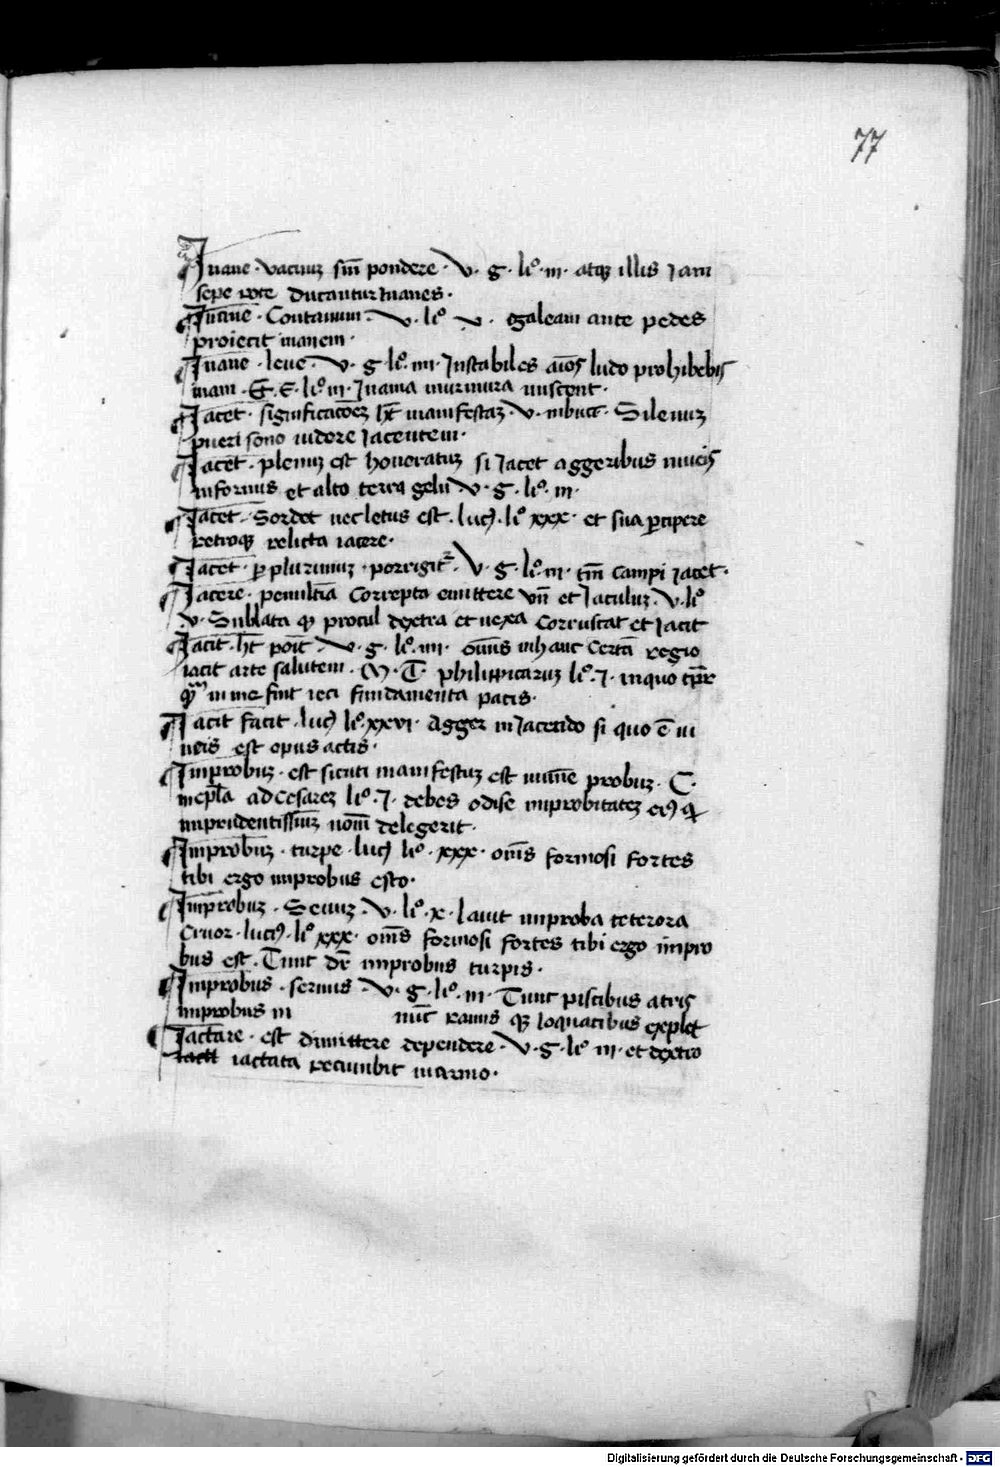 77
Inane · vacuuz sine pondere · V · g · li° · iii · atqz illis Iam
sepe rote Ducuntur Inanes ·
Inane · Contanium · V · li° · v · Egaleam ante pedes
proiecit inanem ·
Inane · leve · V · g · li° · iiii · Instabiles aios ludo prohibebis
inam · li° · iii · Inania murmura miscent ·
Iacet · significacoez hт manifestaz · V · inbuc · Silenuz
pueri sono uidere Iacentem ·
Iacet · plenuz est honeratuz si Iacet aggeribus niueis
informis et alto terra gelu V · g · li° · iii ·
Iacet · Sordet nec letus est · luc9 · li° xxx · et sua pcipere
retroqz relicta iacere ·
Iacet · p plurimuz · porrigit · V · g · li° · iii · tm campi Iacet ·
Iacere · penultia Correpta emittere vn et Iaculuz · V · li°
v · Sublata procul dextra et uexa Corruscat et Iacit
Iacit · ht poit · V · g · li° · iiii · omis inhanc Certa regio
iacit arte salutem · M · T · philippicaruz li° · I · inquo tpr
in me fuit ieci fundamenta pacis ·
Iacit facit · luc9 li° · xxvi · Agger in Iacendo si quo e iu
neis est opus actis ·
Improbuz · est sicuti manifestuz est minie probuz · C ·
inepla ad Cesarez li° · I · debes odise improbitatez ei9
inpridentissiuz nom delegerit ·
Improbuz · turpe · luc9 li° · xxx · oms formosi fortes
tibi ergo improbus esto ·
Improbuz · Seuuz · V · li° · x · lauit improba teterora
Cruor · luci9 · li° xxx · oms formosi fortes tibi ergo impro
bus est · Tunc dr improbus turpis ·
Improbus · seruus · V · g · li° · iii · Tunc piscibus atris
improbus in nuc ramis qz loquacibus explet
Iactare · est dimittere dependere · V · g · li° iii · et dextro
iactata recumbit in armo ·
Digitalisierung gefördert durch die Deutsche Forschungsgemeinschaft · DFG